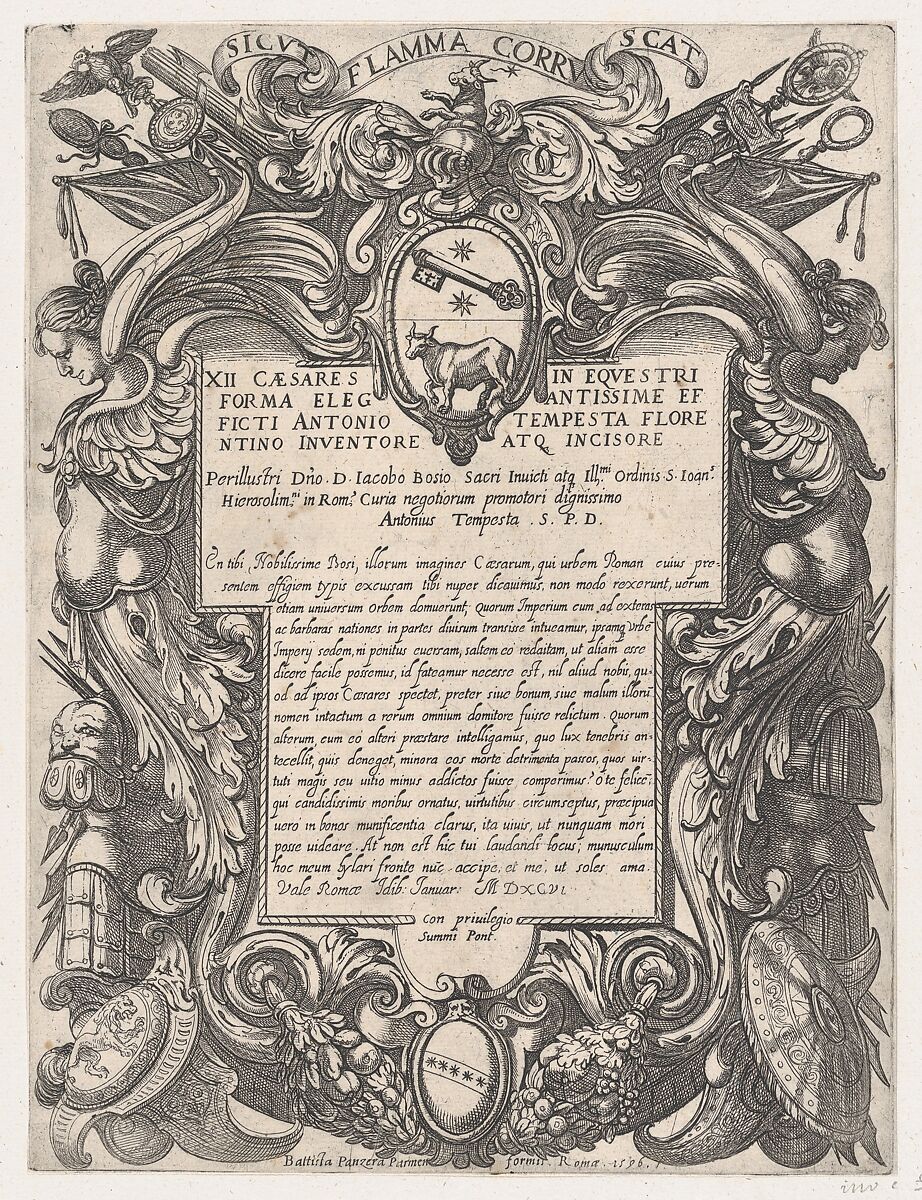 SICVT FLAMMA CORRVSCAT
XII CÆSARES IN EQVESTRI
FORMA ELEGANTISSIME EF
FICTI ANTONIO TEMPESTA FLORE
NTINO INVENTORE ATQ INCISORE
Perillustri Dño. D. Iacobo Bosio Sacri Invicti atq Ill.mi Ordinis S. Ioan.s
Hierosolim.ni in Rom.a Curia negotiorum promotori dignissimo
Antonius Tempesta . S. P. D.
En tibi Nobilissime Bosi, illorum imagines Cæsarum, qui urbem Roman cuius pre=
sentem effigiem typis excussam tibi nuper dicavimus, non modo rexerunt, verum
etiam universum Orbem domuerunt. Quorum Imperium cum ad exteras
ac barbaras nationes in partes divisum transisse intueamur, ipsamq Vrbē
Imperij sedem, ni penitus eversam, saltem eò redaitam, ut aliam esse
dicere facile possemus, id fateamur necesse est, nil aliud nobis, qu=
od ad ipsos Cæsares spectet, preter siue bonum, siue malum illorū
nomen intactum a rerum omnium domitore fuisse relictum. Quorum
alterum, cum eò alteri præstare intelligamus, quo lux tenebris an=
tecellit, quis deneget, minora eos morte detrimenta passos, quos vir=
tuti magis seu vitio minus addictos fuisse comperimus? ò te felicē,
qui candidissimis moribus ornatus, virtutibus circumseptus, præcipua
vero in bonos munificentia clarus, ita vivis, ut nunquam mori
posse videare. At non est hic tui laudandi locus; munusculum
hoc meum hylari fronte nūc accipe, et me, ut soles ama.
Vale Romæ Idib: Ianuar: M DXCVI
Con privilegio
Summi Pont.
Battista Panzera Parmen formis Romæ. 1596.